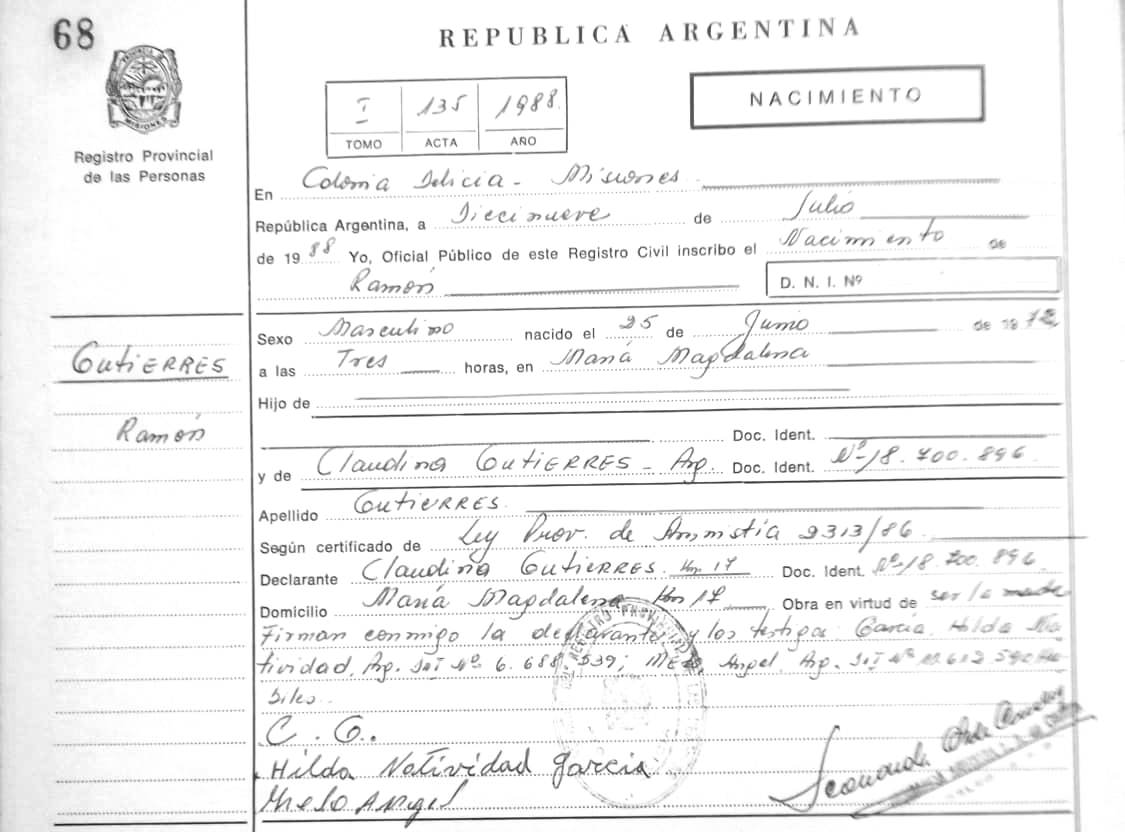 68
REPUBLICA ARGENTINA
PROVINCIA DE MISIONES
Registro Provincial
de las Personas
I 135 1988.
TOMO ACTA AÑO
NACIMIENTO
En Colonia Delicia - Misiones
República Argentina, a Diecinueve de Julio
de 1988 Yo, Oficial Público de este Registro Civil inscribo el Nacimiento de
Ramón D. N. I. Nº
Sexo Masculino nacido el 25 de Junio de 1972
a las Tres horas, en María Magdalena
Hijo de
Doc. Ident.
y de Claudina GUTIERRES - Arg. Doc. Ident. Nº 18.700.896
Apellido GUTIERRES
Según certificado de Ley Prov. de Amnistía 2313/86
Declarante Claudina GUTIERRES. Km 17 Doc. Ident. Nº 18.700.896
Domicilio María Magdalena Km 17 Obra en virtud de ser la madre
Firman conmigo la declarante y los testigos García, Hilda Na
tividad, Arg. Nº 6.688.539; Angel, Arg. Nº
biles.
C. G.
Hilda Natividad Garcia
Melo Angel
GUTIERRES
Ramón